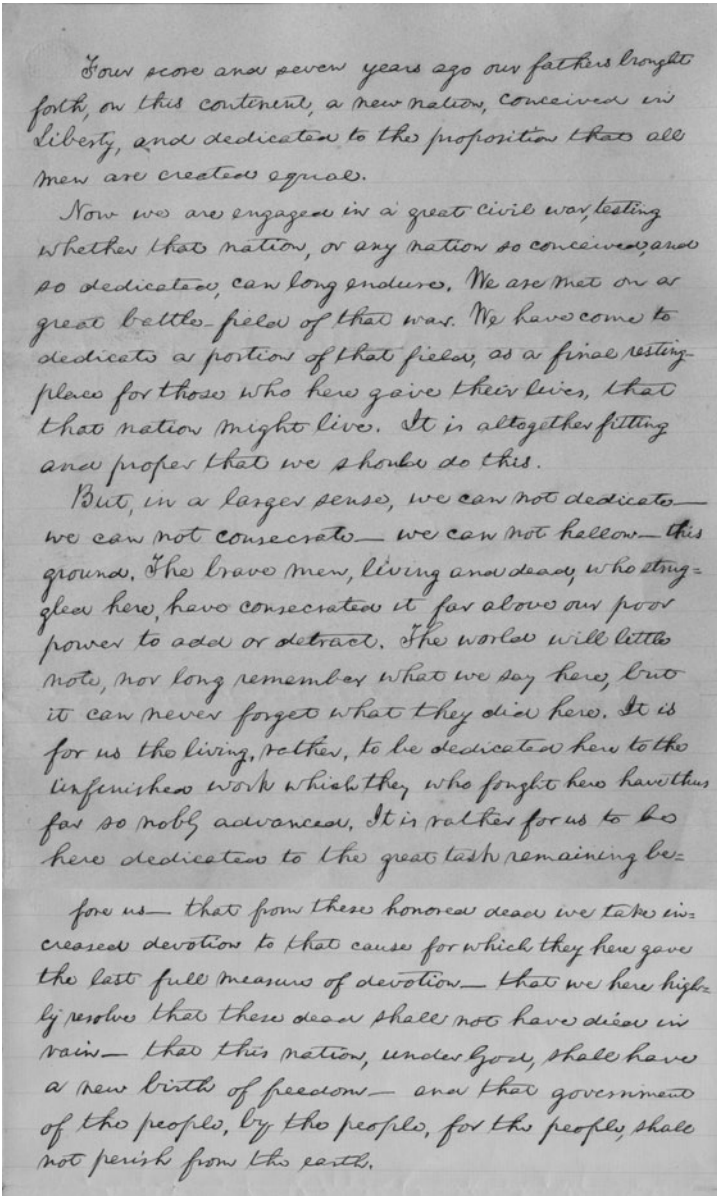 Four score and seven years ago our fathers brought
forth, on this continent, a new nation, conceived in
Liberty, and dedicated to the proposition that all
men are created equal.
Now we are engaged in a great civil war, testing
whether that nation, or any nation so conceived, and
so dedicated, can long endure. We are met on a
great battle-field of that war. We have come to
dedicate a portion of that field, as a final resting-
place for those who here gave their lives, that
that nation might live. It is altogether fitting
and proper that we should do this.
But, in a larger sense, we can not dedicate—
we can not consecrate— we can not hallow— this
ground. The brave men, living and dead, who strug=
gled here, have consecrated it far above our poor
power to add or detract. The world will little
note, nor long remember what we say here, but
it can never forget what they did here. It is
for us the living, rather, to be dedicated here to the
unfinished work which they who fought here have thus
far so nobly advanced. It is rather for us to be
here dedicated to the great task remaining be=
fore us— that from these honored dead we take in=
creased devotion to that cause for which they here gave
the last full measure of devotion— that we here high=
ly resolve that these dead shall not have died in
vain— that this nation, under God, shall have
a new birth of freedom— and that government
of the people, by the people, for the people, shall
not perish from the earth.